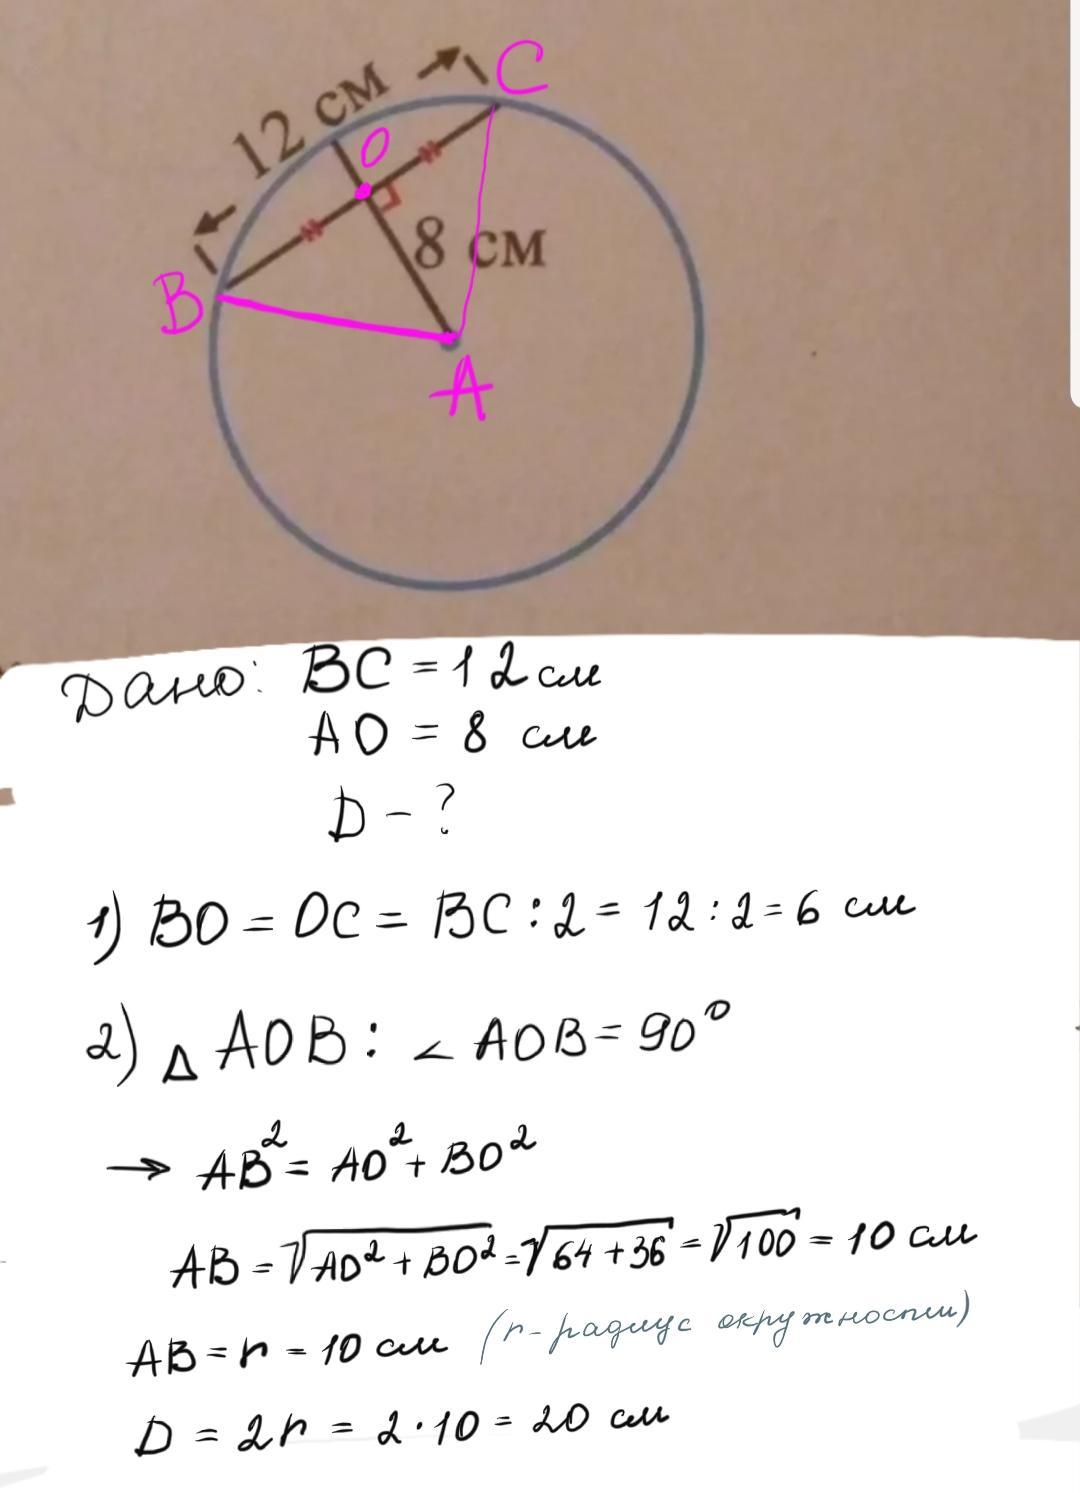 12 см
C
O
8 см
B
A
Дано: BC = 12 см
AO = 8 см
D - ?
1) BO = OC = BC : 2 = 12 : 2 = 6 см
2) △ AOB : ∠ AOB = 90°
→ AB² = AO² + BO²
AB = √AO² + BO² = √64 + 36 = √100 = 10 см
AB = r = 10 см (r - радиус окружности)
D = 2r = 2 · 10 = 20 см